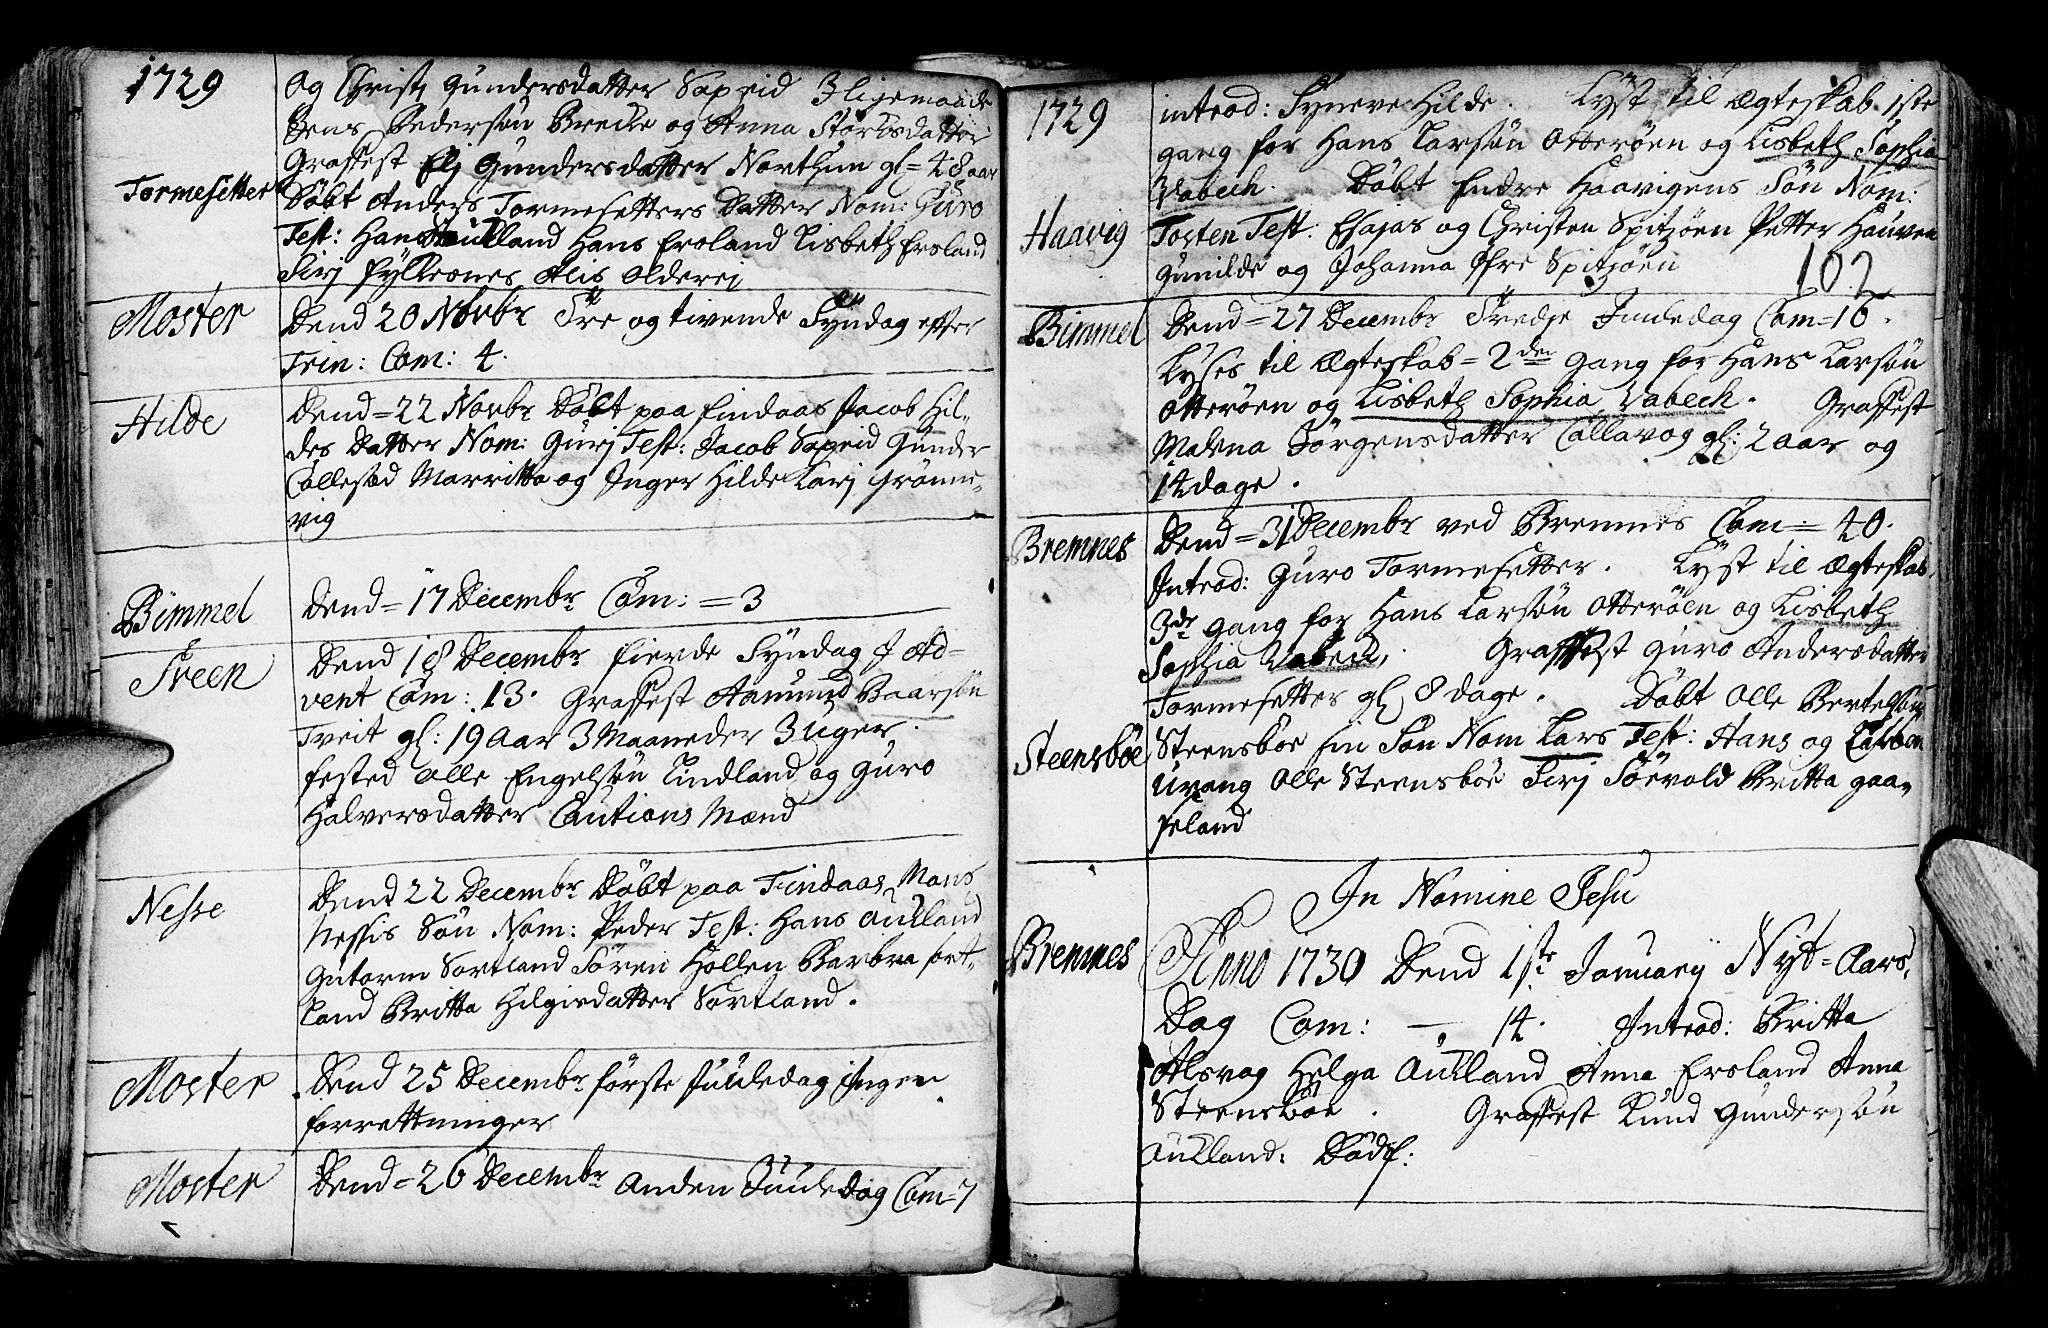 1729
og Christj Gundersdatter Søpreid I ligemaade
Jens Pedersøn Brecke og Anna Størksdatter
Graffest Elj Gundersdatter Northun gl= 48 aar
Tormesetter
Døbt Anders Tormesetters Datter Nom: Guro
Test: Hans Aulland Hans Ersland Lisbeth Ersland
Sirj fylkesnes Alis Olderej
Moster
Dend 20 Novbr Tre og tivende Syndag effter
Trin: Com: 4.
Hilde
Dend = 22 Novbr Døbt paa Findaas Jacob Hil-
des Datter Nom: Gurj Test: Jacob Søpreid Gunder
Callestad Marritta og Inger Hilde Karj Grønne-
vig
Bimmel
Dend = 17 Decembr Com: = 3
Freen
Dend 18 Decembr fierde Syndag I Ad-
vent Com: 13. Graffest Aamund Baarsøn
Tveit gl: 19 Aar 3 Maaneder 3 Uger.
fested Olle Engelsøn Lindland og Guro
Halversdatter Cautions Mænd
Nesse
Dend 22 Decembr Døbt paa Findaas Mons
Nessis Søn Nom: Peder Test: Hans Aulland
Gutorm Sortland Søren Hollen Barbra Sort-
land Britta Helgisdatter Sortland.
Moster
Dend 25 Decembr første Juuledag ingen
forrettninger
Moster
Dend = 26 Decembr Anden Juuledag Com = 7
1729
introd: Syneve Hilde. Lyst til Ægteskab 1ste
gang for Hans Larsøn Otterøen og Lisbeth Sophia
Vabech. Døbt Endre Haavigens Søn Nom:
Haavig
Tosten Test: Esajas og Christen Spitzøen Petter Hauven
Gunilde og Johanna Ifre Spitzøen
102
Bimmel
Dend = 27 Decembr Tredje Juuledag Com = 16.
Lyses til Ægteskab = 2den gang for Hans Larsøn
Otterøen og Lisbeth Sophia Vabech. Graffest
Malena Jørgensdatter Callavog gl: 2 aar og
14 dage.
Bremnes
Dend = 31 Decembr ved Bremnes Com: = 40.
Introd: Guro Tormesetter. Lyst til Ægteskab
3de gang for Hans Larsøn Otterøen og Lisbeth
Sophia Vabech. Graffest Guro Andersdatter
Tormesetter gl 8 dage. Døbt Olle Bertelsøn
Steensbøe
Steensbøe sin Søn Nom Lars Test: Hans og
Urang Olle Steensbøe Sirj Sørvold Britta Gaa-
seland
In Nomine Jesu
Bremnes
Anno 1730 Dend 1ste Januarij Nyt-Aars
Dag Com: — 14. Introd: Britta
Alsvog Helga Aulland Anna Ersland Anna
Steensbøe. Graffest Knud Gundersøn
Aulland: Dødf: